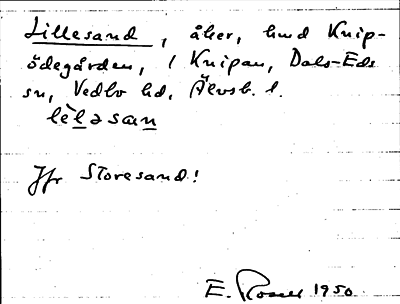 Lillesand, åker, hmd Knip-
ödegården, 1 Knipan, Dals-Eds
sn, Vedbo hd, Älvsb. l.
lèləsan
Jfr Storesand!
E. 1950